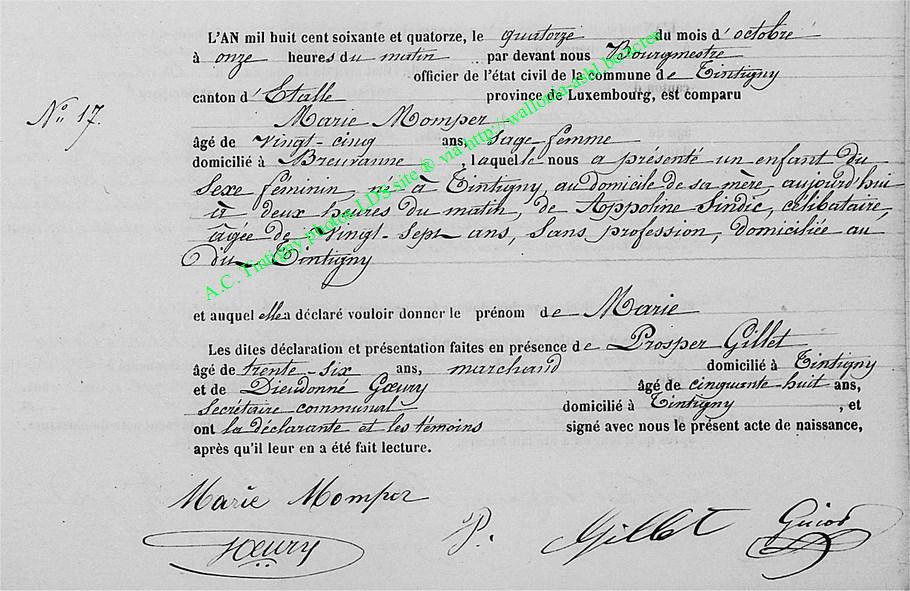 L'AN mil huit cent soixante et quatorze, le quatorze du mois d'octobre
à onze heures du matin par devant nous Bourgmestre
officier de l'état civil de la commune de Tintigny
canton d'Etalle province de Luxembourg, est comparu
N° 17. Marie Momper
âgé de vingt-cinq ans, sage femme
domicilié à Breuvanne, laquelle nous a présenté un enfant du
sexe féminin, né à Tintigny, au domicile de sa mère, aujourd'hui
à deux heures du matin, de Appoline Sindic, célibataire,
âgée de vingt-sept ans, sans profession, domiciliée au
dit Tintigny
et auquel elle a déclaré vouloir donner le prénom de Marie
Les dites déclaration et présentation faites en présence de Prosper Gillet
âgé de trente-six ans, marchand domicilié à Tintigny
et de Dieudonné Gœury âgé de cinquante-huit ans,
secrétaire communal domicilié à Tintigny, et
ont la déclarante et les témoins signé avec nous le présent acte de naissance,
après qu'il leur en a été fait lecture.
Marie Momper
Gœury P. Gillet
A.C. Tintigny photos LDS site ® via http://wallonia-asbl.be/actes